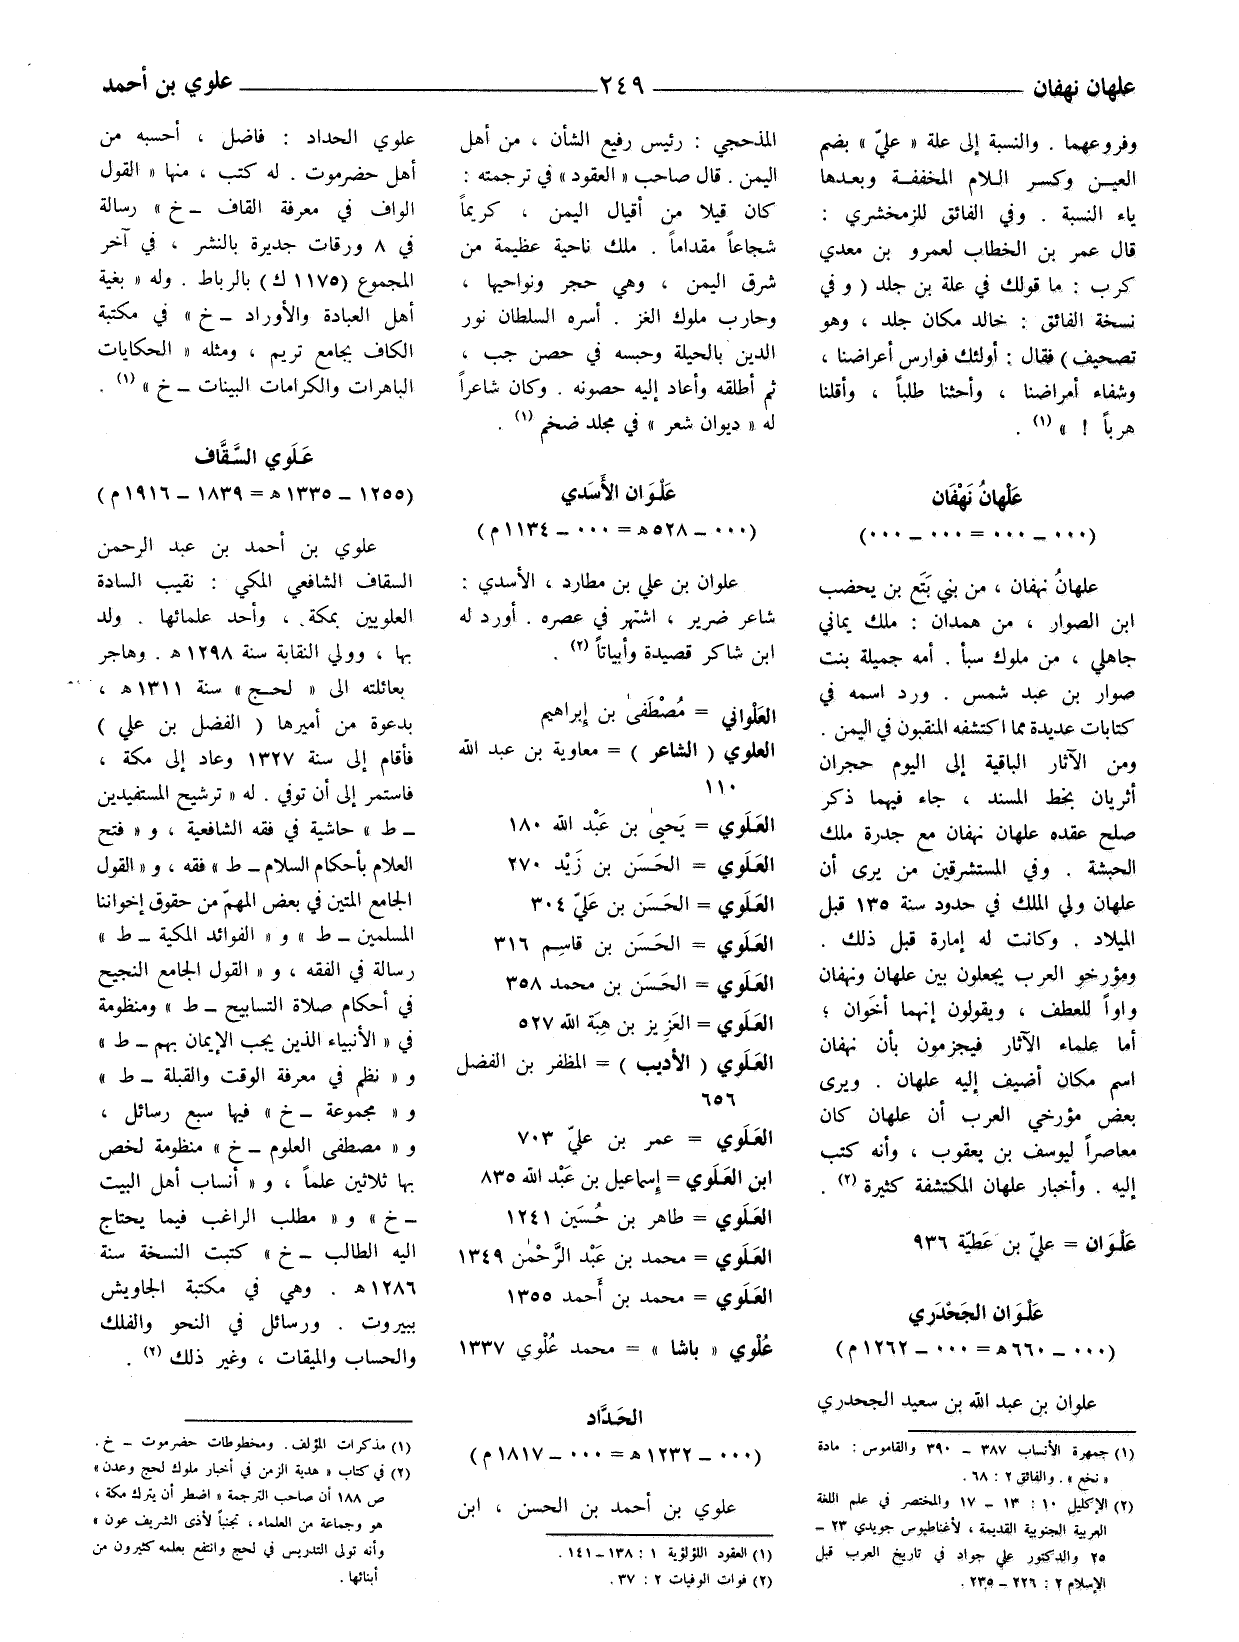 علهان نهفان ٢٤٩ علوي بن أحمد
وفروعهما . والنسبة إلى علة « عليّ » بضم
العيـن وكسر الـلام المخففـة وبعـدها
ياء النسبة . وفي الفائق للزمخشري :
قال عمر بن الخطاب لعمرو بن معدي
كرب : ما قولك في علة بن جلد ( و في
نسخة الفائق : خالد مكان جلد ، وهو
تصحيف ) فقال : أولئك فوارس أعراضنا ،
وشفاء أمراضنا ، وأحثنا طلباً ، وأقلنا
هرباً ! » (١) .
عَلْهانُ نَهْفَان
(٠٠٠ ــ ٠٠٠ = ٠٠٠ ــ ٠٠٠)
علهانُ نهفان ، من بني بَتَع بن يحضب
ابن الصوار ، من همدان : ملك يماني
جاهلي ، من ملوك سبأ . أمه جميلة بنت
صوار بن عبد شمس . ورد اسمه في
كتابات عديدة مما اكتشفه المنقبون في اليمن .
ومن الآثار الباقية إلى اليوم حجران
أثريان بخط المسند ، جاء فيهما ذكر
صلح عقده علهان نهفان مع جدرة ملك
الحبشة . وفي المستشرقين من يرى أن
علهان ولي الملك في حدود سنة ١٣٥ قبل
الميلاد . وكانت له إمارة قبل ذلك .
ومؤرخو العرب يجعلون بين علهان ونهفان
واواً للعطف ، ويقولون إنهما أخَوان ؛
أما علماء الآثار فيجزمون بأن نهفان
اسم مكان أضيف إليه علهان . ويرى
بعض مؤرخي العرب أن علهان كان
معاصراً ليوسف بن يعقوب ، وأنه كتب
إليه . وأخبار علهان المكتشفة كثيرة (٢) .
عَلْوَان = عليّ بن عَطيّة ٩٣٦
عَلْوَان الجَحْدَري
(٠٠٠ ــ ٦٦٠ هـ = ٠٠٠ ــ ١٢٦٢ م)
علوان بن عبد الله بن سعيد الجحدري
(١) جمهرة الأنساب ٣٨٧ ــ ٣٩٠ والقاموس : مادة
« نخع » . والفائق ٢ : ٦٨ .
(٢) الإكليل ١٠ : ١٣ ــ ١٧ والمختصر في علم اللغة
العربية الجنوبية القديمة ، لأغناطيوس جويدي ٢٣ ــ
٢٥ والدكتور علي جواد في تاريخ العرب قبل
الإسلام ٢ : ٢٢٦ ــ ٢٣٥ .
المذحجي : رئيس رفيع الشأن ، من أهل
اليمن . قال صاحب « العقود » في ترجمته :
كان قيلا من أقيال اليمن ، كريماً
شجاعاً مقداماً . ملك ناحية عظيمة من
شرق اليمن ، وهي حجر ونواحيها ،
وحارب ملوك الغز . أسره السلطان نور
الدين بالحيلة وحبسه في حصن جب ،
ثم أطلقه وأعاد إليه حصونه . وكان شاعراً
له « ديوان شعر » في مجلد ضخم (١) .
عَلْوَان الأَسَدي
(٠٠٠ ــ ٥٢٨ هـ = ٠٠٠ ــ ١١٣٤ م)
علوان بن علي بن مطارد ، الأسدي :
شاعر ضرير ، اشتهر في عصره . أورد له
ابن شاكر قصيدة وأبياتاً (٢) .
العَلْواني = مُصْطَفىٰ بن إبراهيم
العلوي ( الشاعر ) = معاوية بن عبد الله
١١٠
العَلَوي = يَحيىٰ بن عَبْد الله ١٨٠
العَلَوي = الحَسَن بن زَيْد ٢٧٠
العَلَوي = الحَسَن بن عَليّ ٣٠٤
العَلَوي = الحَسَن بن قاسِم ٣١٦
العَلَوي = الحَسَن بن محمد ٣٥٨
العَلَوي = العَزِيز بن هِبَة الله ٥٢٧
العَلَوي ( الأديب ) = المظفر بن الفضل
٦٥٦
العَلَوي = عمر بن عليّ ٧٠٣
ابن العَلَوي = إسماعيل بن عَبْد الله ٨٣٥
العَلَوي = طاهر بن حُسَين ١٢٤١
العَلَوي = محمد بن عَبْد الرَّحْمٰن ١٣٤٩
العَلَوي = محمد بن أَحمد ١٣٥٥
عُلْوي « باشا » = محمد عُلْوي ١٣٣٧
الحَدَّاد
(٠٠٠ ــ ١٢٣٢ هـ = ٠٠٠ ــ ١٨١٧ م)
علوي بن أحمد بن الحسن ، ابن
(١) العقود اللؤلؤية ١ : ١٣٨ ــ ١٤١ .
(٢) فوات الوفيات ٢ : ٣٧ .
علوي الحداد : فاضل ، أحسبه من
أهل حضرموت . له كتب ، منها « القول
الواف في معرفة القاف ــ خ » رسالة
في ٨ ورقات جديرة بالنشر ، في آخر
المجموع (١١٧٥ ك) بالرباط . وله « بغية
أهل العبادة والأوراد ــ خ » في مكتبة
الكاف بجامع تريم ، ومثله « الحكايات
الباهرات والكرامات البينات ــ خ » (١) .
عَلَوي السَّقَّاف
(١٢٥٥ ــ ١٣٣٥ هـ = ١٨٣٩ ــ ١٩١٦ م)
علوي بن أحمد بن عبد الرحمن
السقاف الشافعي المكي : نقيب السادة
العلويين بمكة ، وأحد علمائها . ولد
بها ، وولي النقابة سنة ١٢٩٨ هـ . وهاجر
بعائلته الى « لحـج » سنة ١٣١١ هـ ،
بدعوة من أميرها ( الفضل بن علي )
فأقام إلى سنة ١٣٢٧ وعاد إلى مكة ،
فاستمر إلى أن توفي . له « ترشيح المستفيدين
ــ ط » حاشية في فقه الشافعية ، و « فتح
العلام بأحكام السلام ــ ط » فقه ، و « القول
الجامع المتين في بعض المهمّ من حقوق إخواننا
المسلمين ــ ط » و « الفوائد المكية ــ ط »
رسالة في الفقه ، و « القول الجامع النجيح
في أحكام صلاة التسابيح ــ ط » ومنظومة
في « الأنبياء الذين يجب الإيمان بهم ــ ط »
و « نظم في معرفة الوقت والقبلة ــ ط »
و « مجموعة ــ خ » فيها سبع رسائل ،
و « مصطفى العلوم ــ خ » منظومة لخص
بها ثلاثين علماً ، و « أنساب أهل البيت
ــ خ » و « مطلب الراغب فيما يحتاج
اليه الطالب ــ خ » كتبت النسخة سنة
١٢٨٦ هـ . وهي في مكتبة الجاويش
ببيروت . ورسائل في النحو والفلك
والحساب والميقات ، وغير ذلك (٢) .
(١) مذكرات المؤلف . ومخطوطات حضرموت ــ خ .
(٢) في كتاب « هدية الزمن في أخبار ملوك لحج وعدن »
ص ١٨٨ أن صاحب الترجمة « اضطر أن يترك مكة ،
هو وجماعة من العلماء ، تجنباً لأذى الشريف عون »
وأنه تولى التدريس في لحج وانتفع بعلمه كثيرون من
أبنائها .